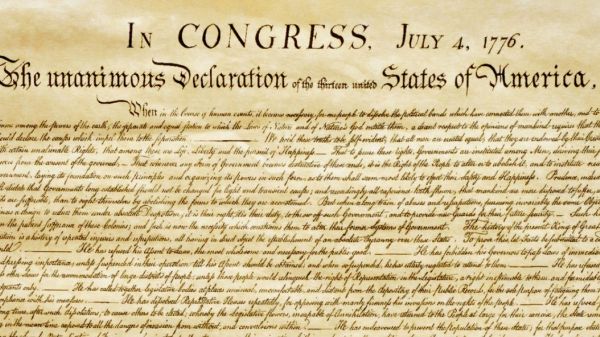 In CONGRESS, July 4, 1776.
The unanimous Declaration of the thirteen united States of America,
When in the Course of human events, it becomes necessary for one people to dissolve the political bands which have connected them with another, and to
among the powers of the earth, the separate and equal station to which the Laws of Nature and of Nature's God entitle them, a decent respect to the opinions of mankind requires that
declare the causes which impel them to the separation. We hold these truths to be self-evident, that all men are created equal, that they are endowed by their
with certain unalienable Rights, that among these are Life, Liberty and the pursuit of Happiness. That to secure these rights, Governments are instituted among Men, deriving
from the consent of the governed, That whenever any Form of Government becomes destructive of these ends, it is the Right of the People to alter or to abolish it, and to institute
laying its foundation on such principles and organizing its powers in such form, as to them shall seem most likely to effect their Safety and Happiness. Prudence,
that Governments long established should not be changed for light and transient causes; and accordingly all experience hath shewn, that mankind are more disposed to suffer,
are sufferable, than to right themselves by abolishing the forms to which they are accustomed. But when a long train of abuses and usurpations, pursuing invariably the same
a design to reduce them under absolute Despotism, it is their right, it is their duty, to throw off such Government, and to provide new Guards for their future security. Such
the patient sufferance of these Colonies; and such is now the necessity which constrains them to alter their former Systems of Government. The history of the present King of Great
a history of repeated injuries and usurpations, all having in direct object the establishment of an absolute Tyranny over these States. To prove this, let Facts be submitted to a
He has refused his Assent to Laws, the most wholesome and necessary for the public good. He has forbidden his Governors to pass Laws of immediate
pressing importance, unless suspended in their operation till his Assent should be obtained; and when so suspended, he has utterly neglected
other Laws for the accommodation of large districts of people, unless those people would relinquish the right of Representation in the Legislature, a right inestimable to them and formidable
only. He has called together legislative bodies at places unusual, uncomfortable, and distant from the depository of their public Records, for the sole purpose of fatiguing them
with his measures. He has dissolved Representative Houses repeatedly, for opposing with manly firmness his invasions on the rights of the people. He has refused
time, after such dissolutions, to cause others to be elected; whereby the Legislative powers, incapable of Annihilation, have returned to the People at large for their exercise; the State
in the mean time exposed to all the dangers of invasion from without, and convulsions within. He has endeavoured to prevent the population of these States; for that purpose